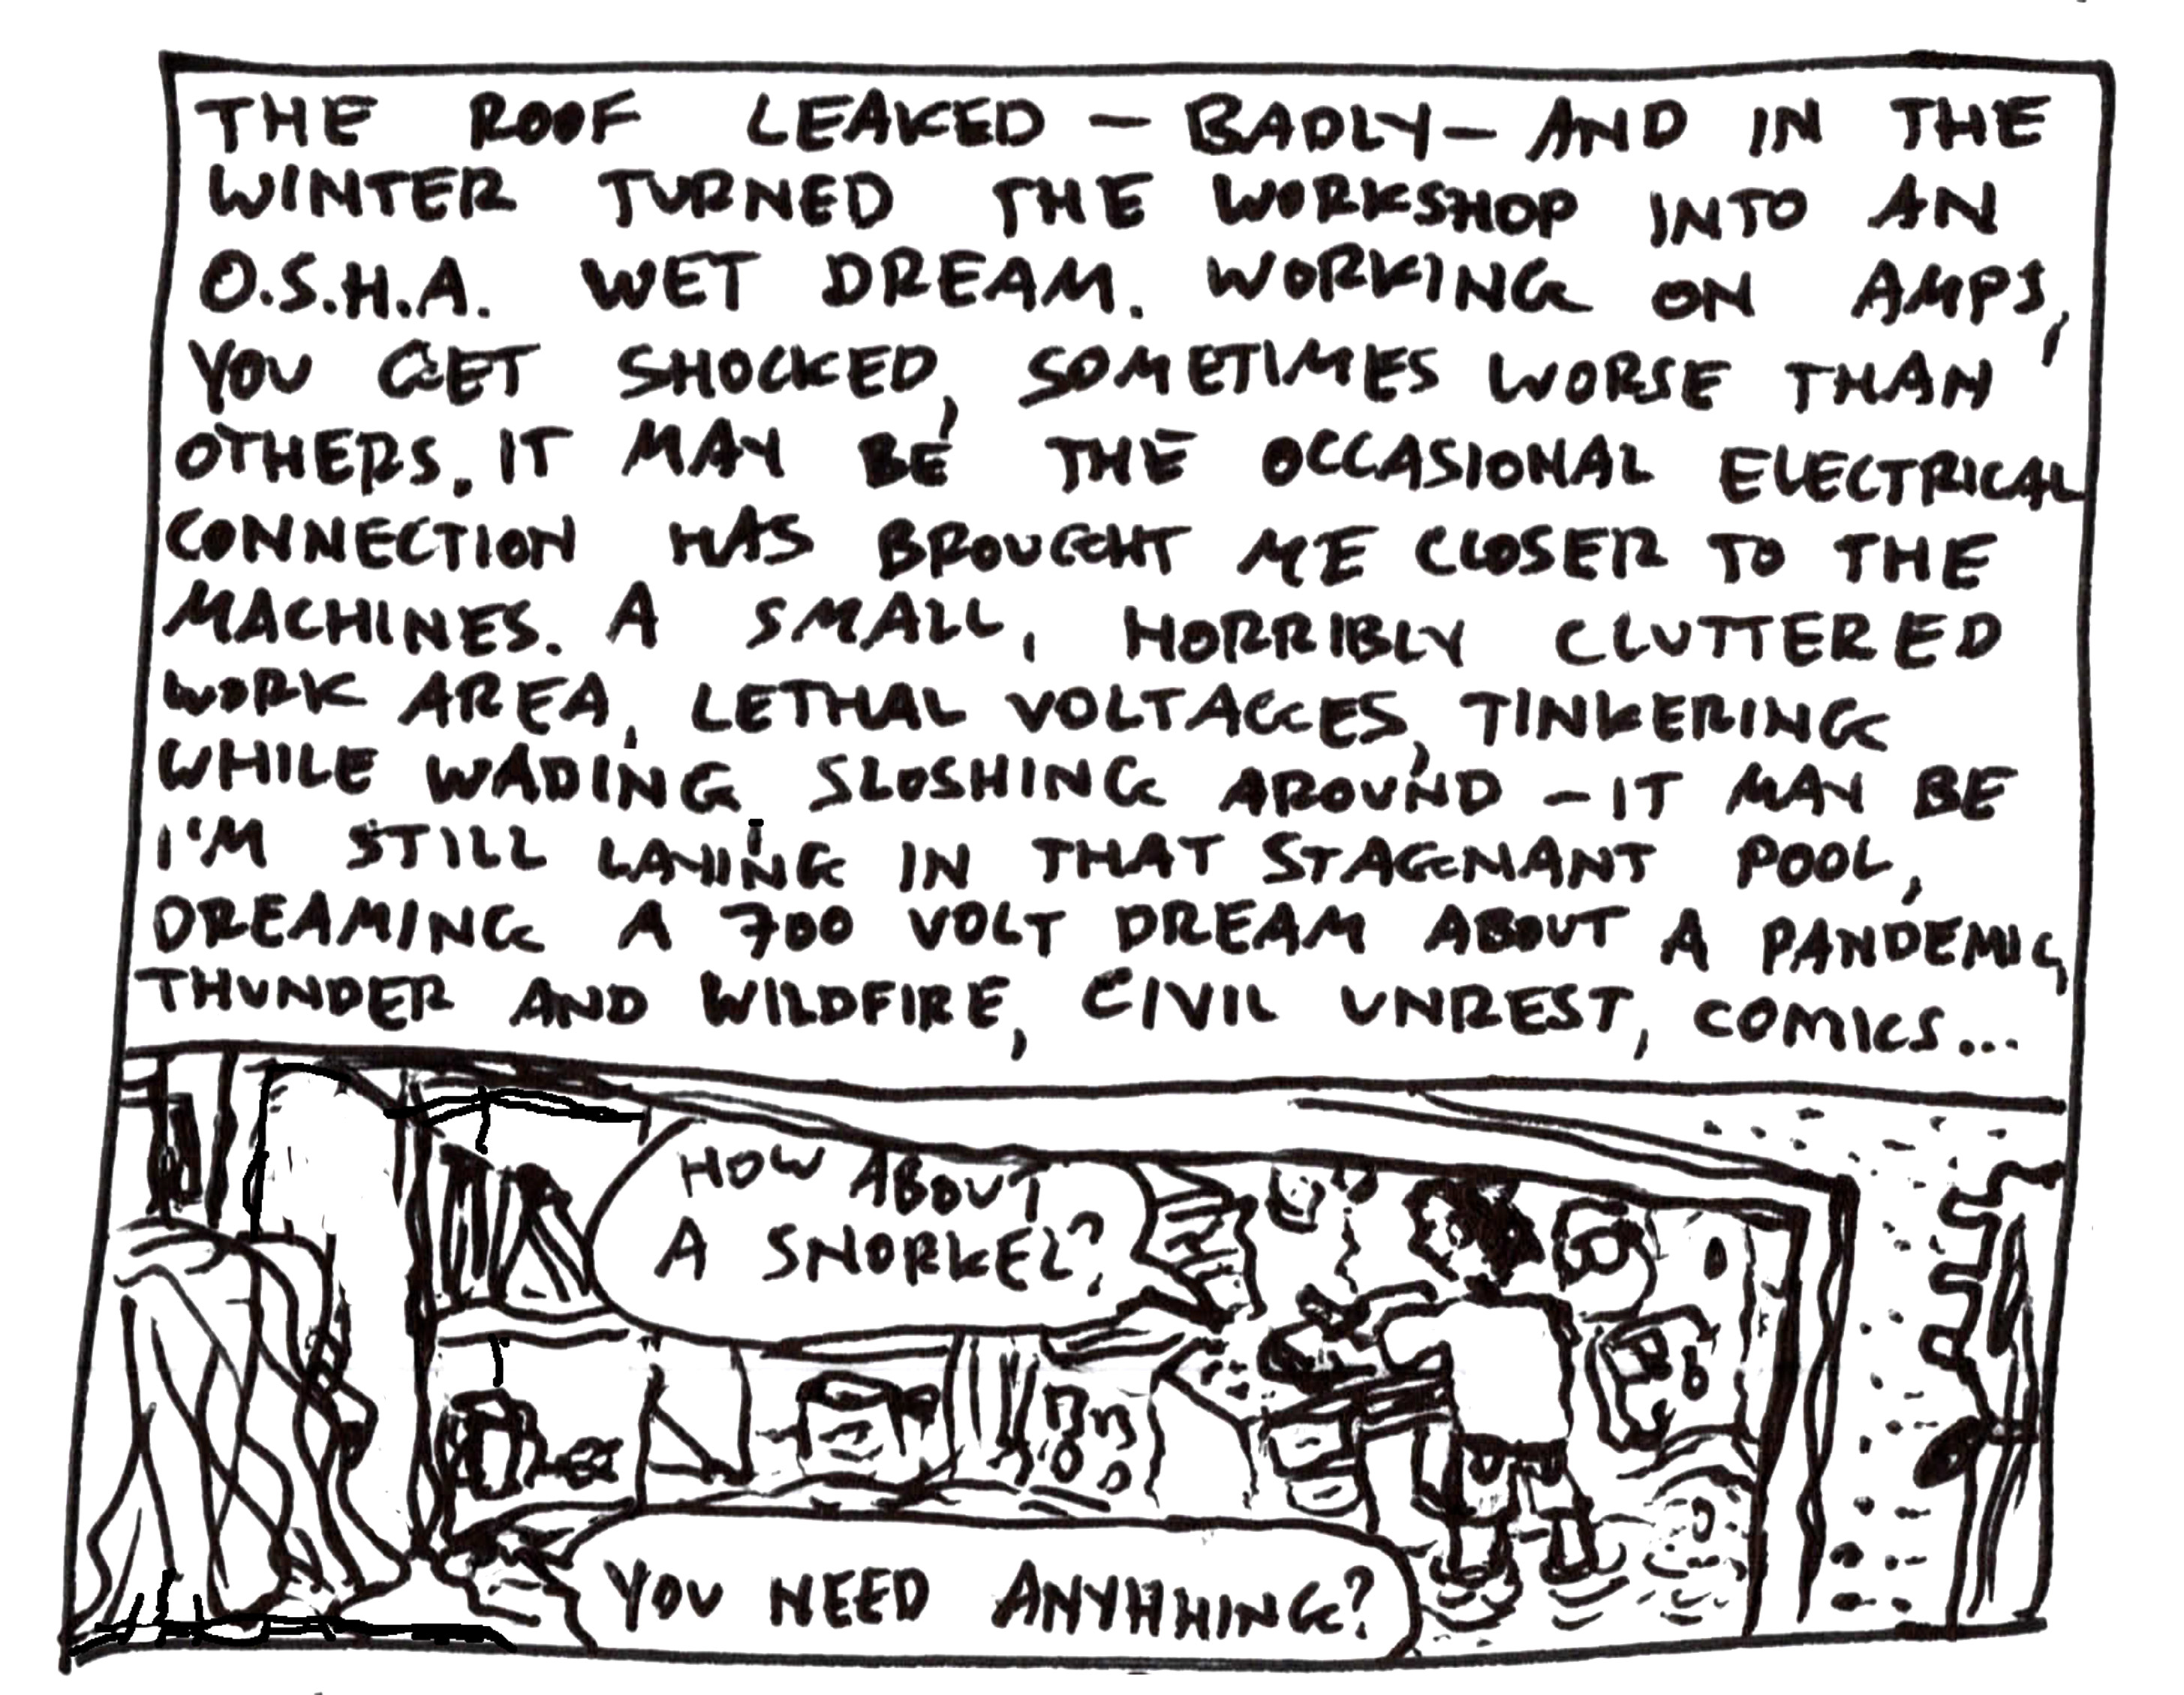 THE ROOF LEAKED - BADLY - AND IN THE
WINTER TURNED THE WORKSHOP INTO AN
O.S.H.A. WET DREAM. WORKING ON AMPS,
YOU GET SHOCKED, SOMETIMES WORSE THAN
OTHERS. IT MAY BE THE OCCASIONAL ELECTRICAL
CONNECTION HAS BROUGHT ME CLOSER TO THE
MACHINES. A SMALL, HORRIBLY CLUTTERED
WORK AREA, LETHAL VOLTAGES, TINKERING
WHILE WADING, SLOSHING AROUND - IT MAY BE
I'M STILL LAYING IN THAT STAGNANT POOL,
DREAMING A 700 VOLT DREAM ABOUT A PANDEMIC,
THUNDER AND WILDFIRE, CIVIL UNREST, COMICS...
HOW ABOUT
A SNORKEL?
YOU NEED ANYHHING?